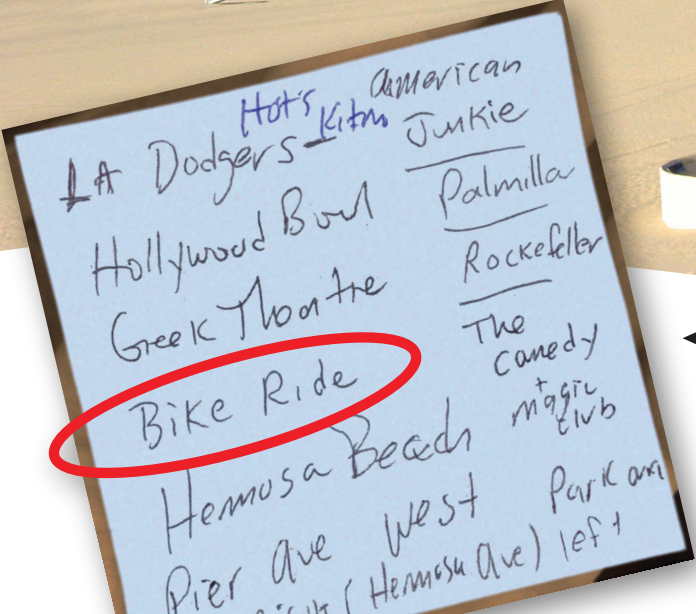 Hot's Kitm
LA Dodgers -
Hollywood Bowl
Greek Theatre
Bike Ride
Hermosa Beach
Pier ave West
(Hermosa Ave) left
American
Junkie
Palmilla
Rockefeller
The
Comedy
+
magic
club
Park